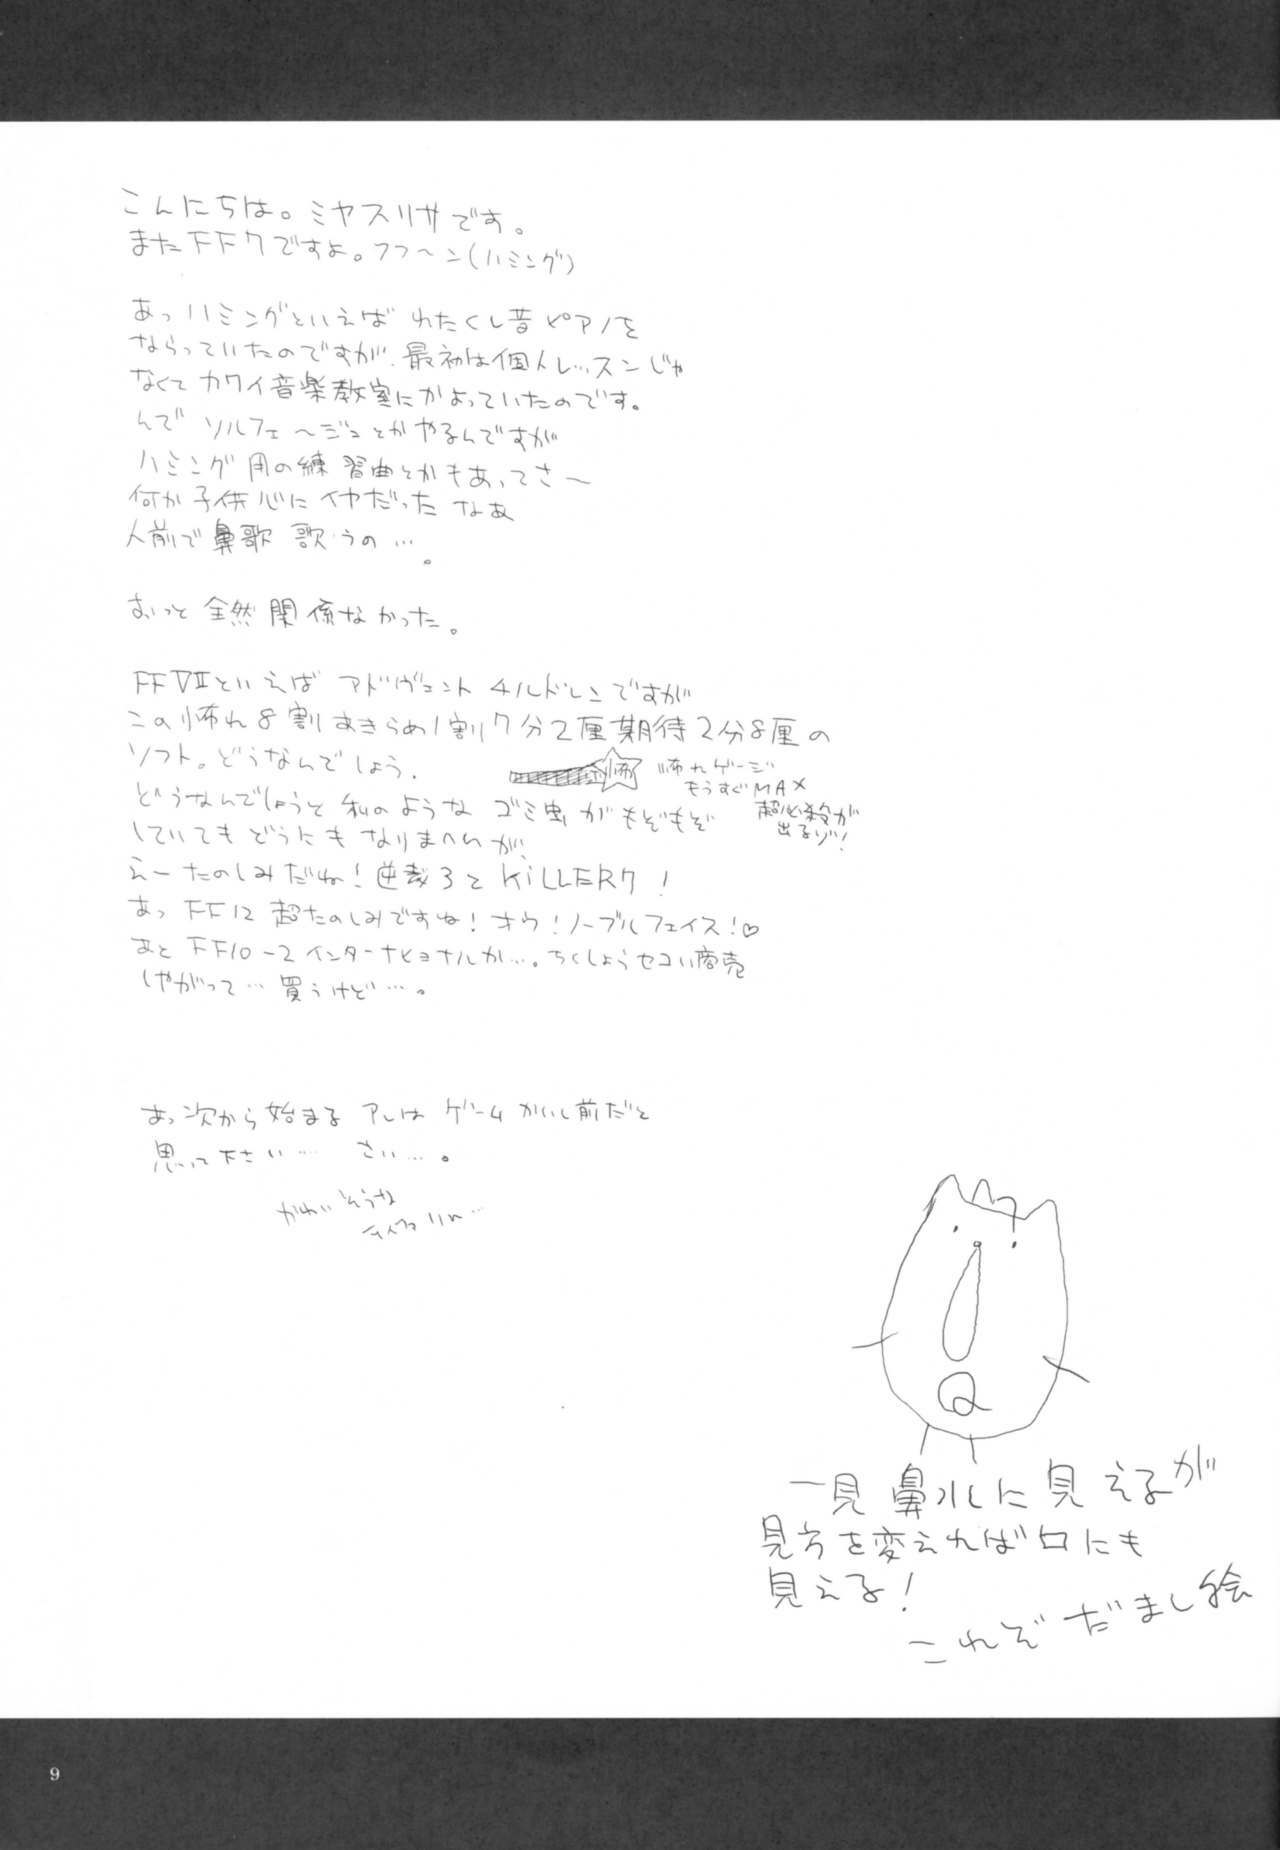 こんにちは。ミヤスリサです。
またFF7ですよ。フフ〜ン(ハミング)
あっハミングといえば わたくし昔ピアノを
ならっていたのですが、最初は個人レッスンじゃ
なくてカワイ音楽教室にかよっていたのです。
んで ソルフェ〜ジュとかやるんですが
ハミング用の練習曲とかもあってさ〜
何か子供心にイヤだったなあ
人前で鼻歌 歌うの…。
おっと 全然関係なかった。
FFⅦといえば アドヴェントチルドレンですが
この怖れ8割あきらめ1割7分2厘期待2分8厘の
ソフト。どうなんでしょう。
怖
怖れゲージ
もうすぐMAX
超必殺が
出るゾ!
どうなんでしょうと 私のような ゴミ虫がもぞもぞ
していてもどうにもなりまへんが、
えーたのしみだね!逆裁3とKiLLER7!
あっ FF12 超たのしみですね!オウ!ノーブルフェイス!♡
あと FF10-2インターナショナルか…。ちくしょうセコい商売
しやがって…買うけど…。
あっ次から始まる アレは ゲームかいし前だと
思って下さい… さい…。
かわいそうな
ティファ
一見鼻水に見えるが
見方を変えれば口にも
見える!
これぞだまし絵
9